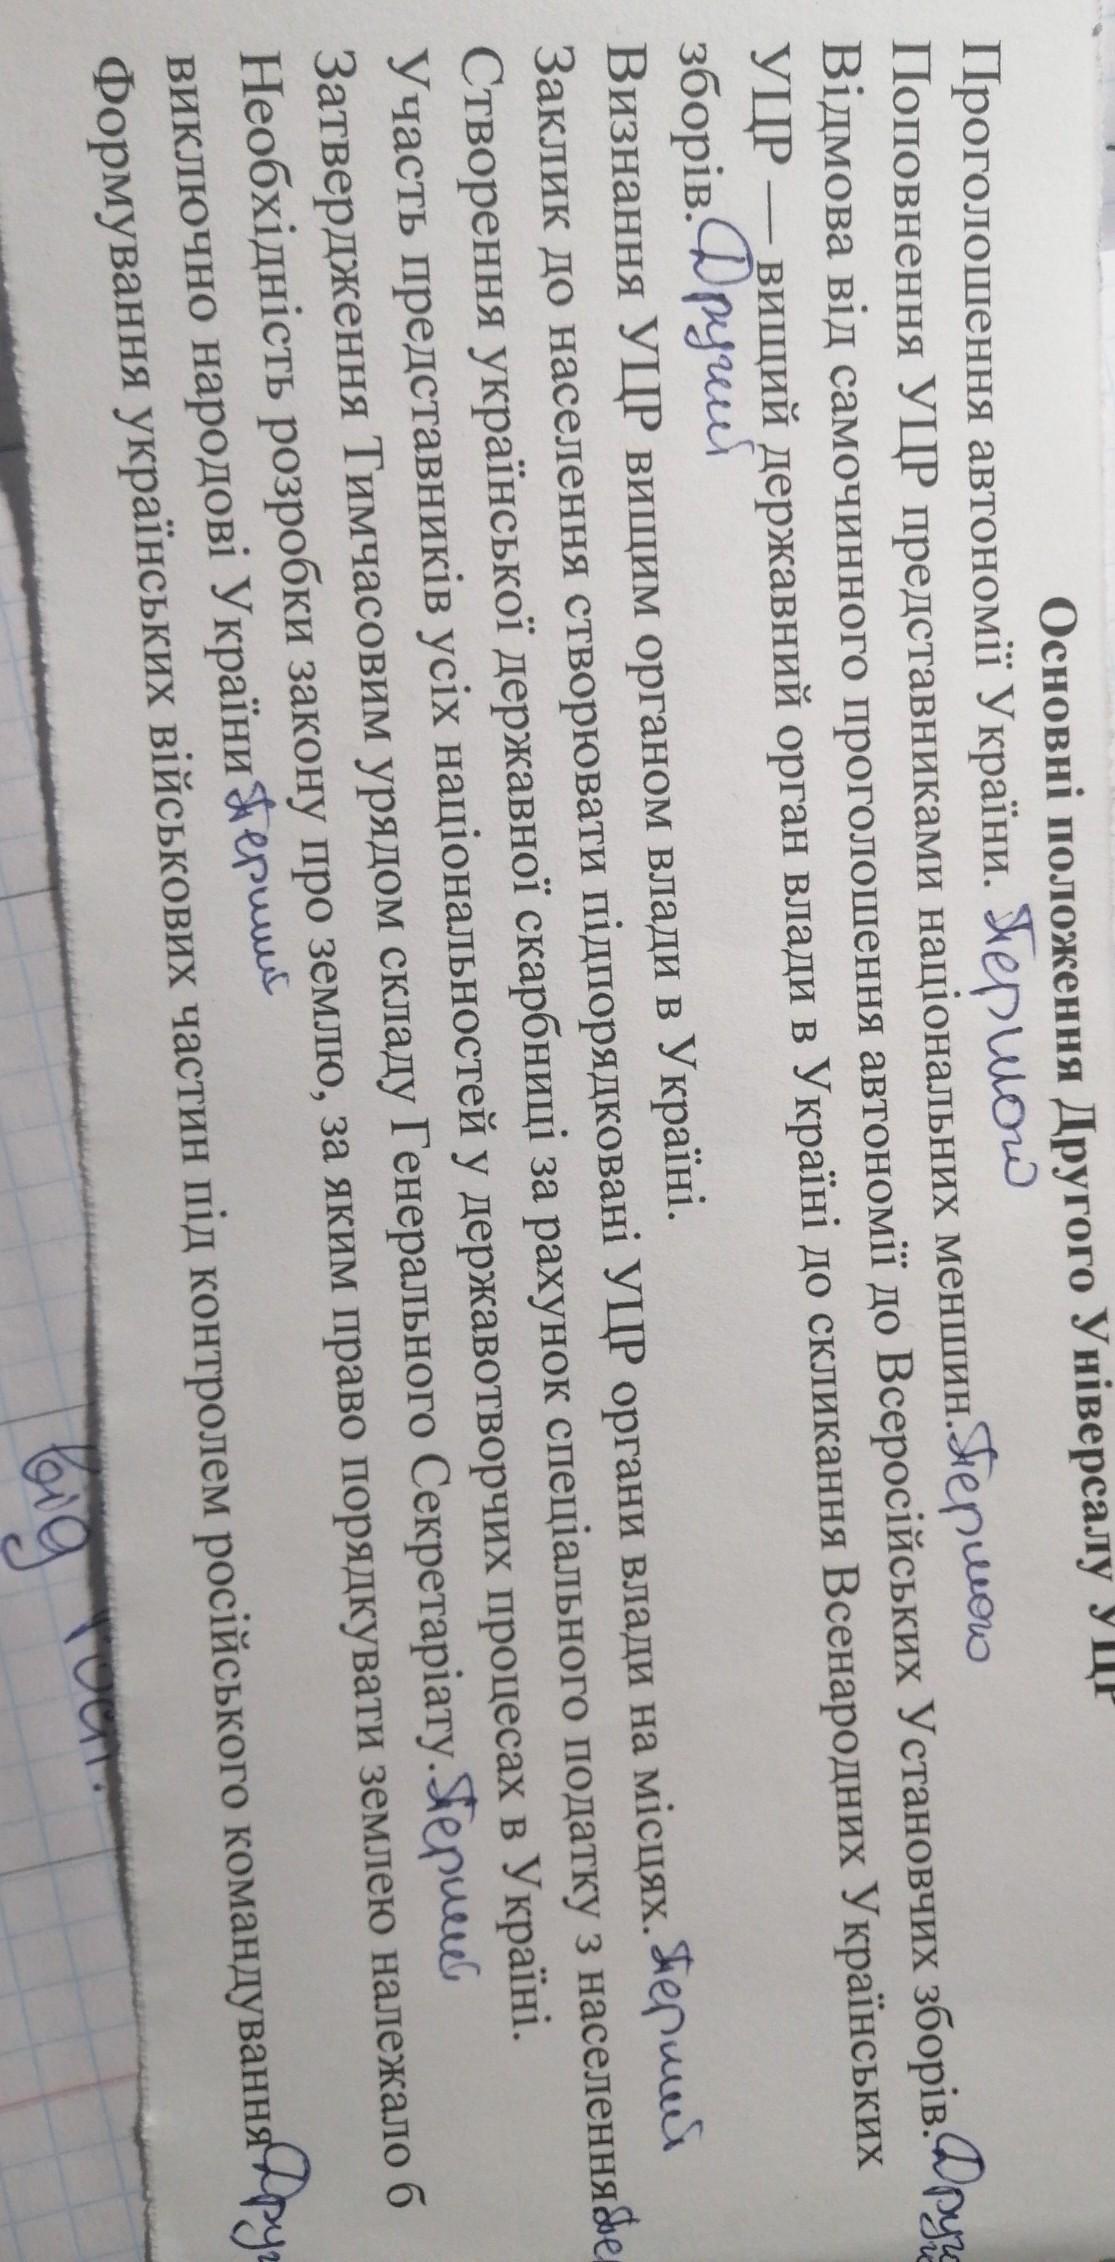 Основні положення Другого Універсалу УЦР
Проголошення автономії України. Першого
Поповнення УЦР представниками національних меншин. Першого
Відмова від самочинного проголошення автономії до Всеросійських Установчих зборів.
УЦР — вищий державний орган влади в Україні до скликання Всенародних Українських
зборів. Другий
Визнання УЦР вищим органом влади в Україні.
Заклик до населення створювати підпорядковані УЦР органи влади на місцях. Перший
Створення української державної скарбниці за рахунок спеціального податку з населення
Участь представників усіх національностей у державотворчих процесах в Україні.
Затвердження Тимчасовим урядом складу Генерального Секретаріату. Перший
Необхідність розробки закону про землю, за яким право порядкувати землею належало б
виключно народові України Перший
Формування українських військових частин під контролем російського командування
від